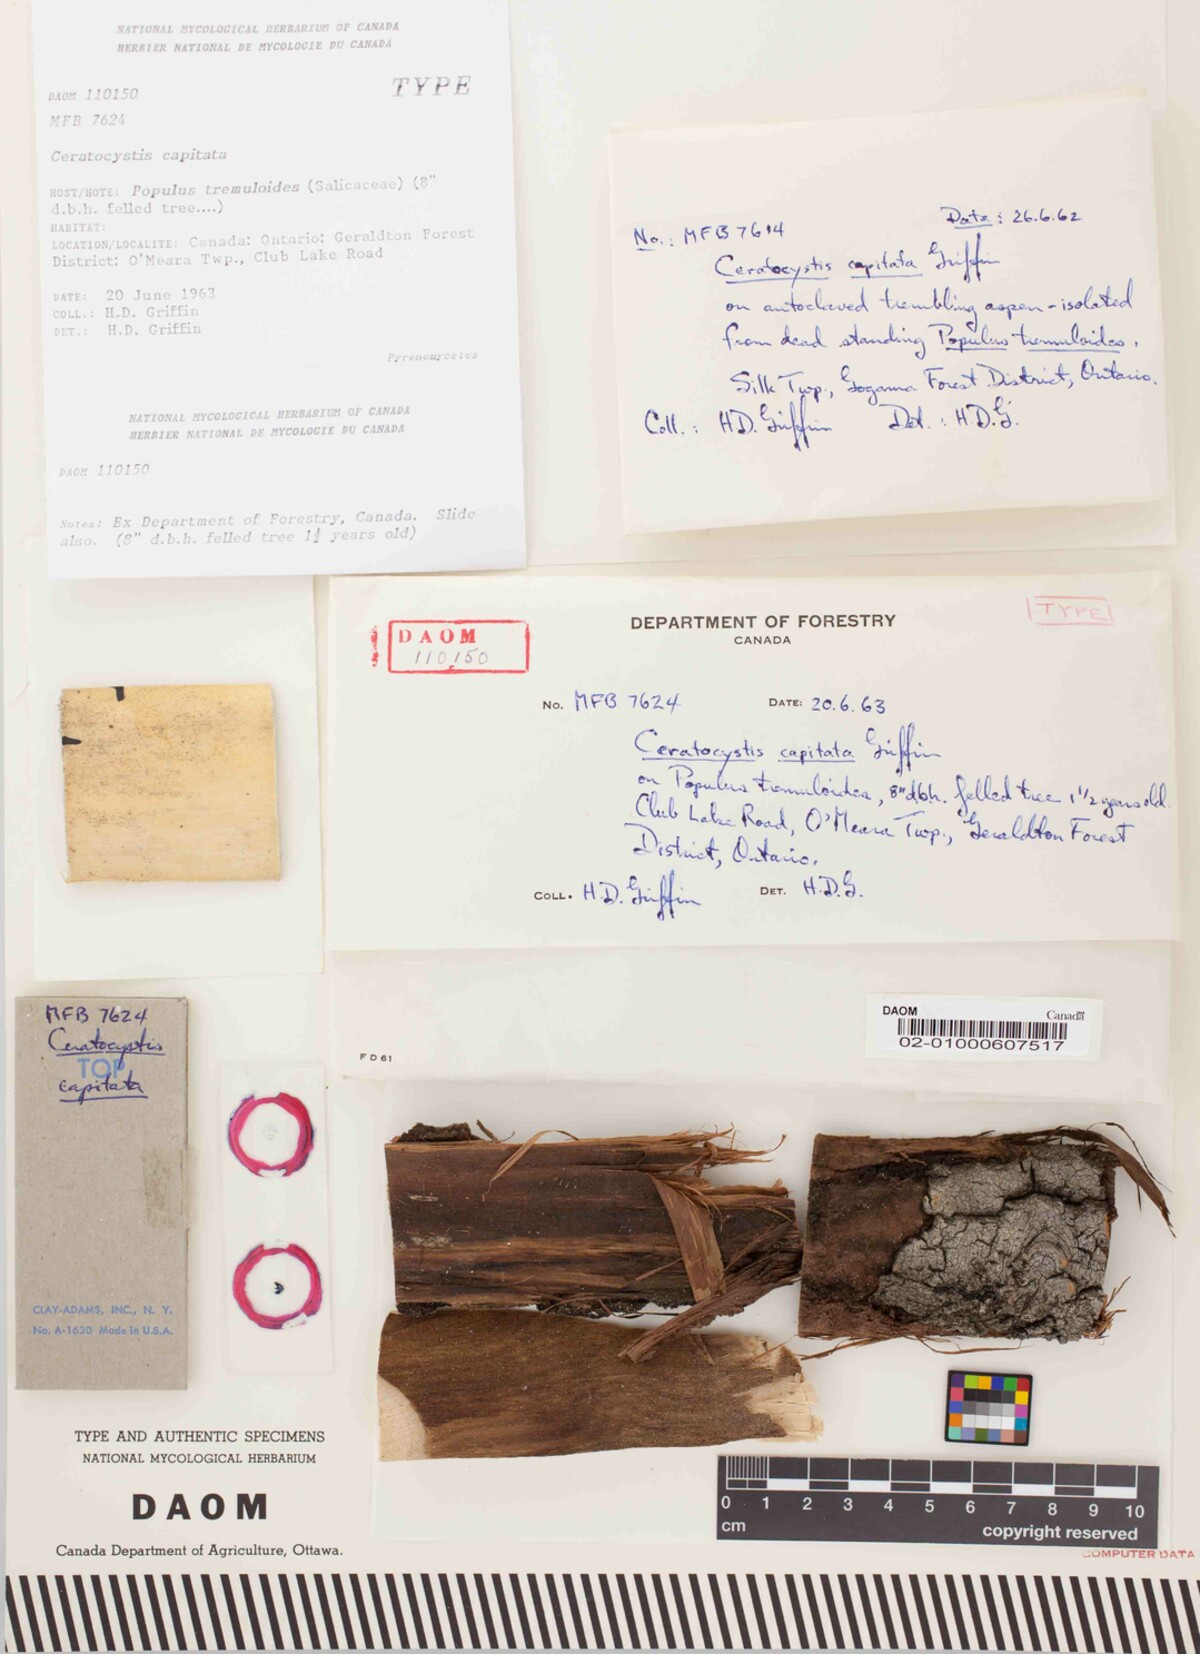 NATIONAL MYCOLOGICAL HERBARIUM OF CANADA
HERBIER NATIONAL DE MYCOLOGIE DU CANADA
DAOM 110150
TYPE
MFB 7624
Ceratocystis capitata
HOST/HOTE: Populus tremuloides (Salicaceae) (8"
d.b.h. felled tree....)
HABITAT:
LOCATION/LOCALITE: Canada: Ontario: Geraldton Forest
District: O'Meara Twp., Club Lake Road
DATE: 20 June 1963
COLL.: H.D. Griffin
DET.: H.D. Griffin
Pyrenomycetes
NATIONAL MYCOLOGICAL HERBARIUM OF CANADA
HERBIER NATIONAL DE MYCOLOGIE DU CANADA
DAOM 110150
Notes: Ex Department of Forestry, Canada. Slide
also. (8" d.b.h. felled tree 1½ years old)
Date: 26.6.62
No.: MFB 7614
Ceratocystis capitata Griffin
on autoclaved trembling aspen - isolated
from dead standing Populus tremuloides.
Silk Twp., Gogama Forest District, Ontario.
Coll.: H.D. Griffin Det.: H.D.G.
DAOM
110150
DEPARTMENT OF FORESTRY
CANADA
TYPE
No. MFB 7624 DATE: 20.6.63
Ceratocystis capitata Griffin
on Populus tremuloides, 8" dbh. felled tree 1 1/2 years old.
Club Lake Road, O'Meara Twp., Geraldton Forest
District, Ontario.
COLL. H.D. Griffin DET. H.D.G.
FD 61
DAOM Canada
02-01000607517
MFB 7624
Ceratocystis
TOP
capitata
CLAY-ADAMS, INC., N. Y.
No. A-1630 Made in U.S.A.
TYPE AND AUTHENTIC SPECIMENS
NATIONAL MYCOLOGICAL HERBARIUM
DAOM
Canada Department of Agriculture, Ottawa.
0 1 2 3 4 5 6 7 8 9 10
cm
copyright reserved
COMPUTER DATA